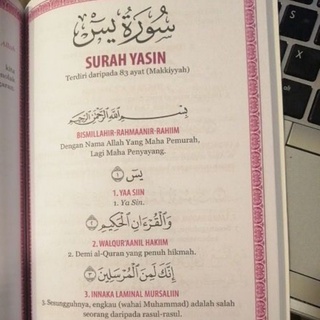 سورة يس
SURAH YASIN
Terdiri daripada 83 ayat (Makkiyyah)
بِسْمِ اللَّهِ الرَّحْمَٰنِ الرَّحِيمِ
BISMILLAHIR-RAHMAANIR-RAHIIM
Dengan Nama Allah Yang Maha Pemurah,
Lagi Maha Penyayang.
يسٓ ١
1. YAA SIIN
1. Ya Sin.
وَالْقُرْءَانِ الْحَكِيمِ ٢
2. WALQUR'AANIL HAKIIM
2. Demi al-Quran yang penuh hikmah.
إِنَّكَ لَمِنَ الْمُرْسَلِينَ ٣
3. INNAKA LAMINAL MURSALIIN
3. Sesungguhnya, engkau (wahai Muhammad) adalah salah
seorang daripada rasul-rasul.